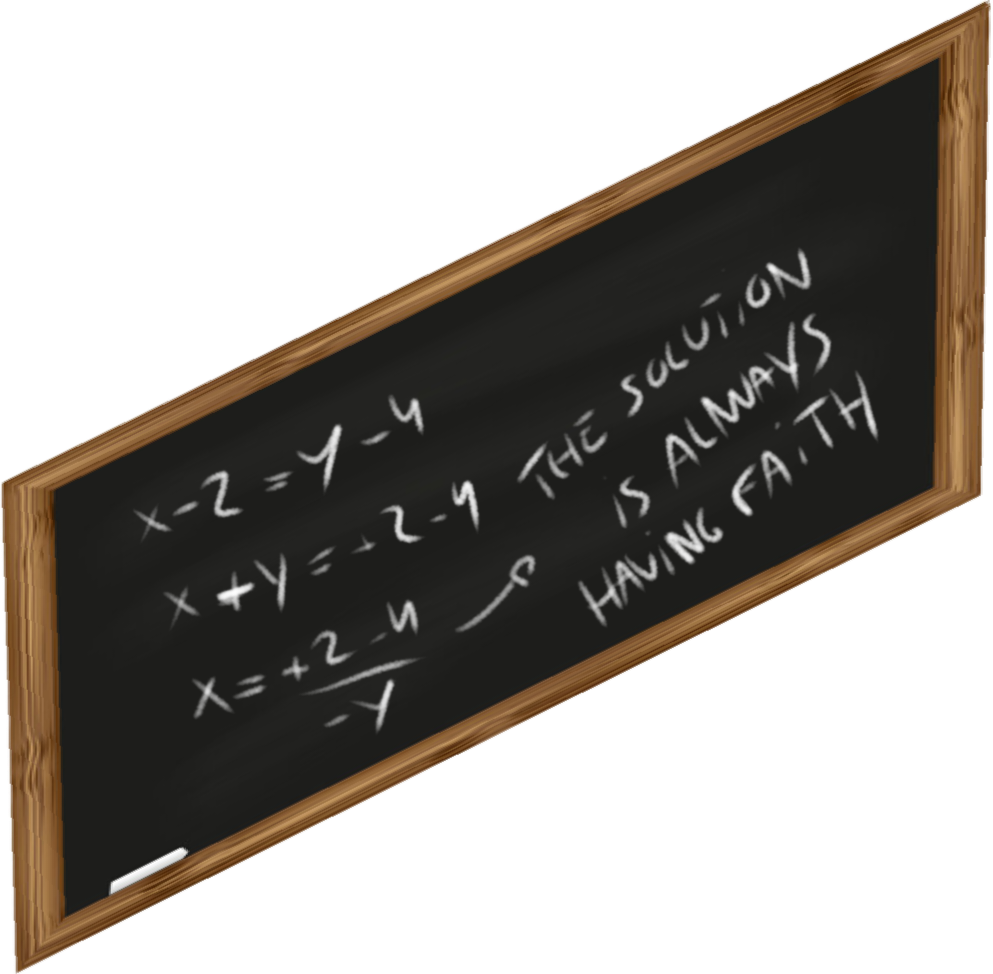 x-2=y-4
x+y=+2-4
x=+2-4
-y
THE SOLUTION
IS ALWAYS
HAViNG FAiTH